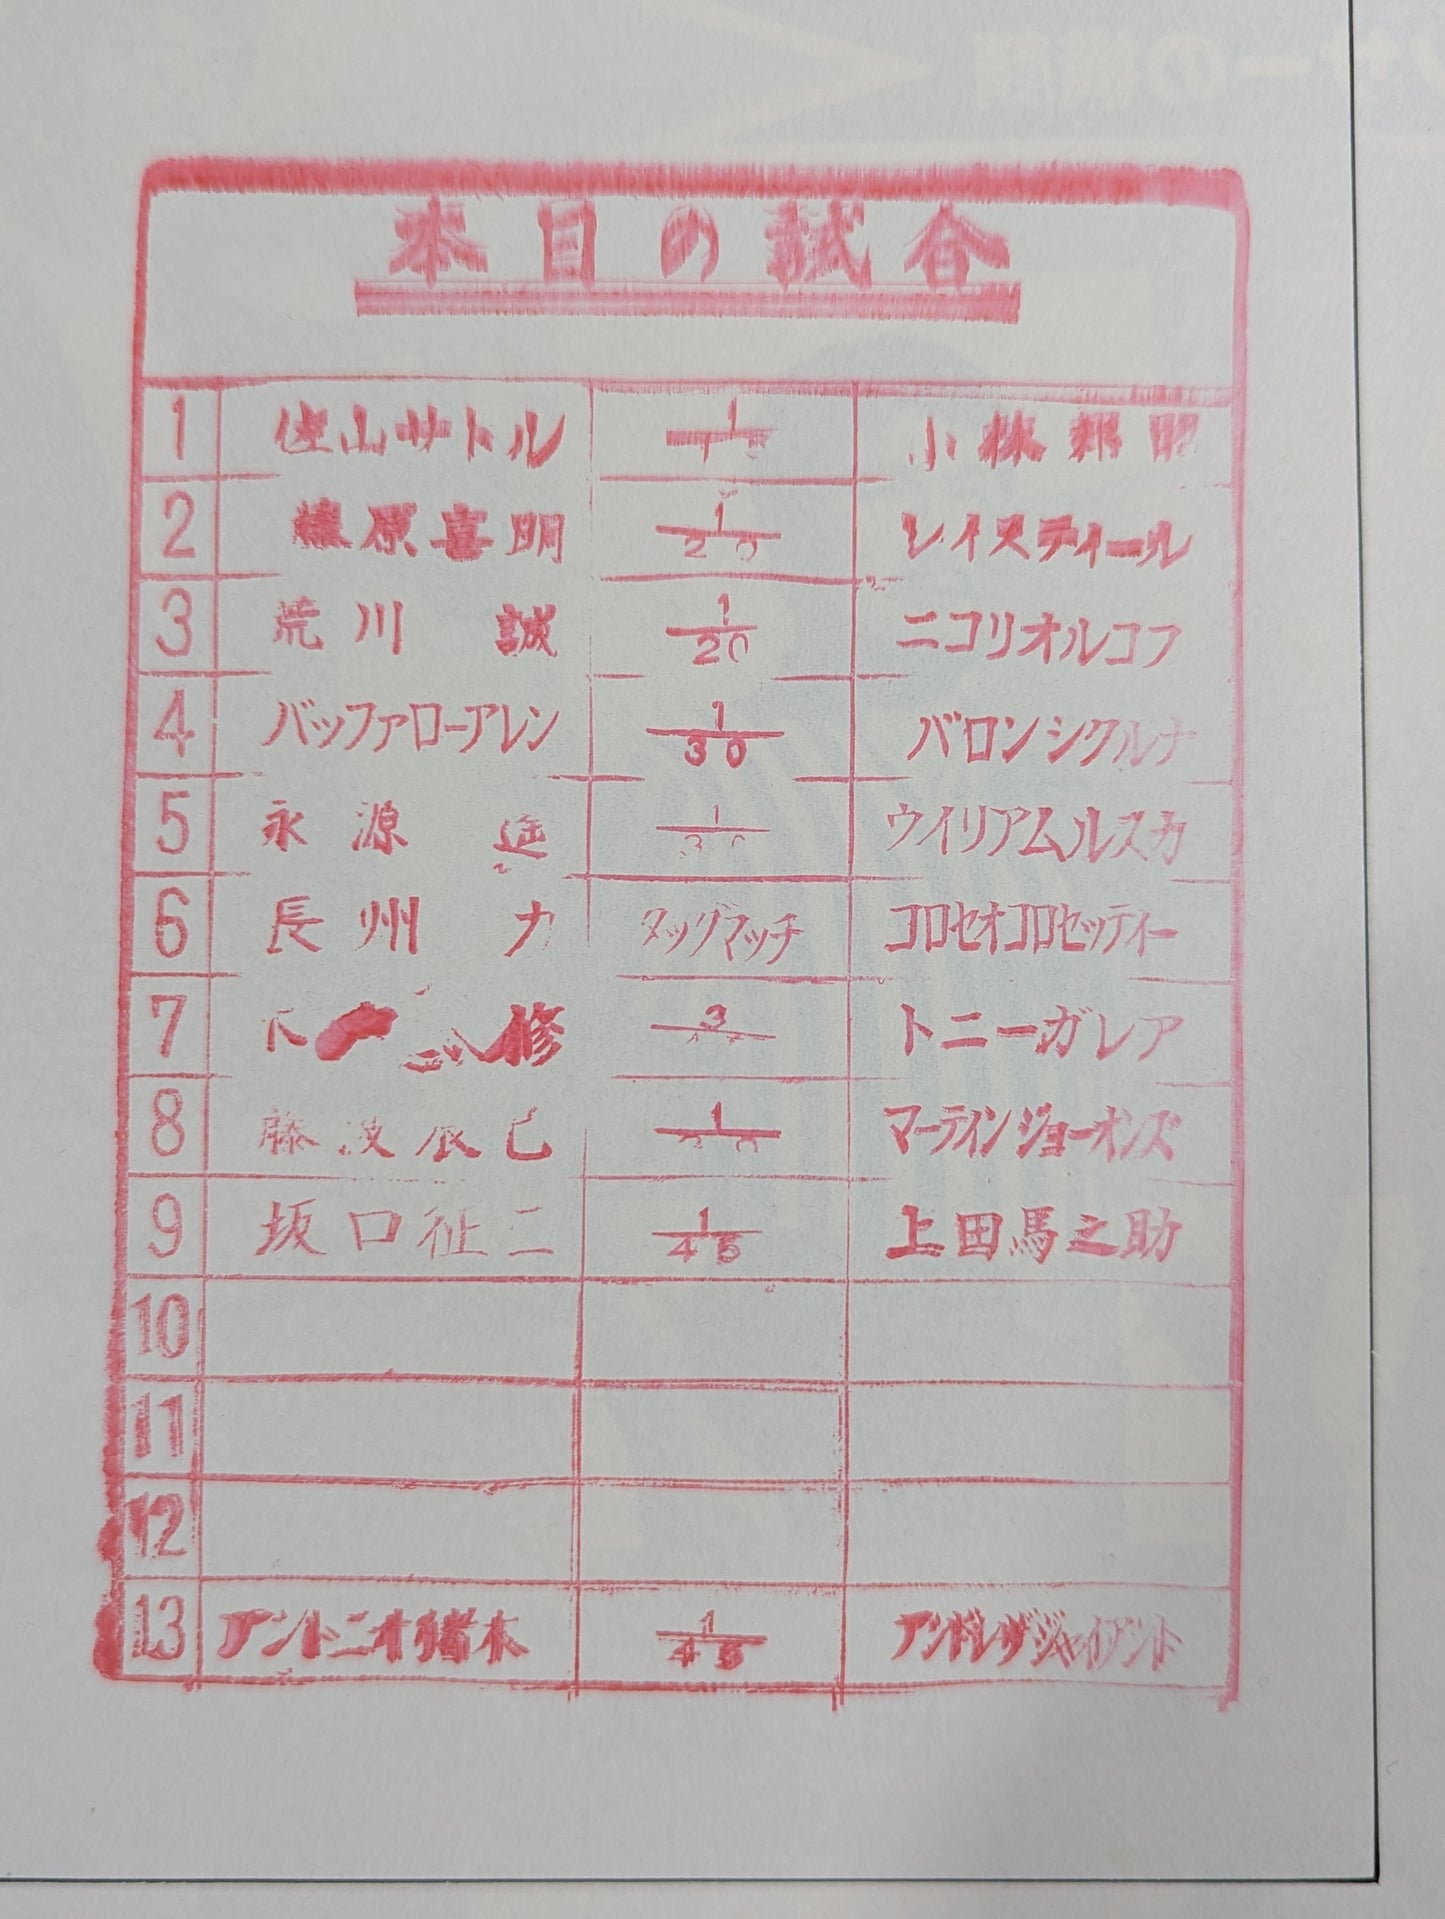 本日の試合
1 佐山サトル 1/15 小林邦明
2 藤原喜明 1/20 レイスティール
3 荒川 誠 1/20 ニコリオルコフ
4 バッファローアレン 1/30 バロンシクルナ
5 永源 遥 1/30 ウイリアムルスカ
6 長州 力 タッグマッチ コロセオコロセッティー
7 修 3 トニーガレア
8 藤波辰巳 1 マーティンジョーオンズ
9 坂口征二 1/45 上田馬之助
10
11
12
13 アントニオ猪木 1/45 アンドレザジャイアント